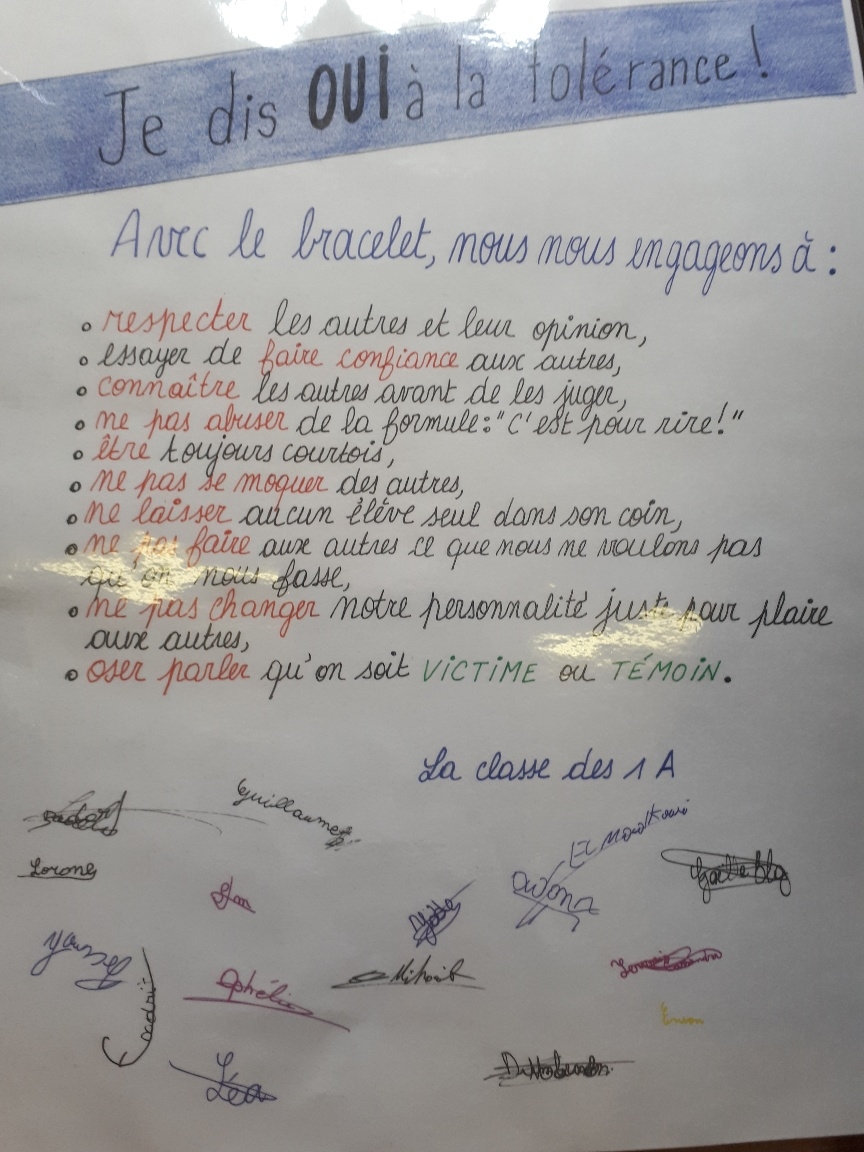 Je dis OUi à la tolérance !
Avec le bracelet, nous nous engageons à :
• respecter les autres et leur opinion,
• essayer de faire confiance aux autres,
• connaître les autres avant de les juger,
• ne pas abuser de la formule : "C'est pour rire!"
• être toujours courtois,
• ne pas se moquer des autres,
• ne laisser aucun élève seul dans son coin,
• ne pas faire aux autres ce que nous ne voulons pas
qu'on nous fasse,
• ne pas changer notre personnalité juste pour plaire
aux autres,
• oser parler qu'on soit ViCTiME ou TÉMOiN.
La classe des 1 A
Guillaume
Youssef
Ophélie
Léa